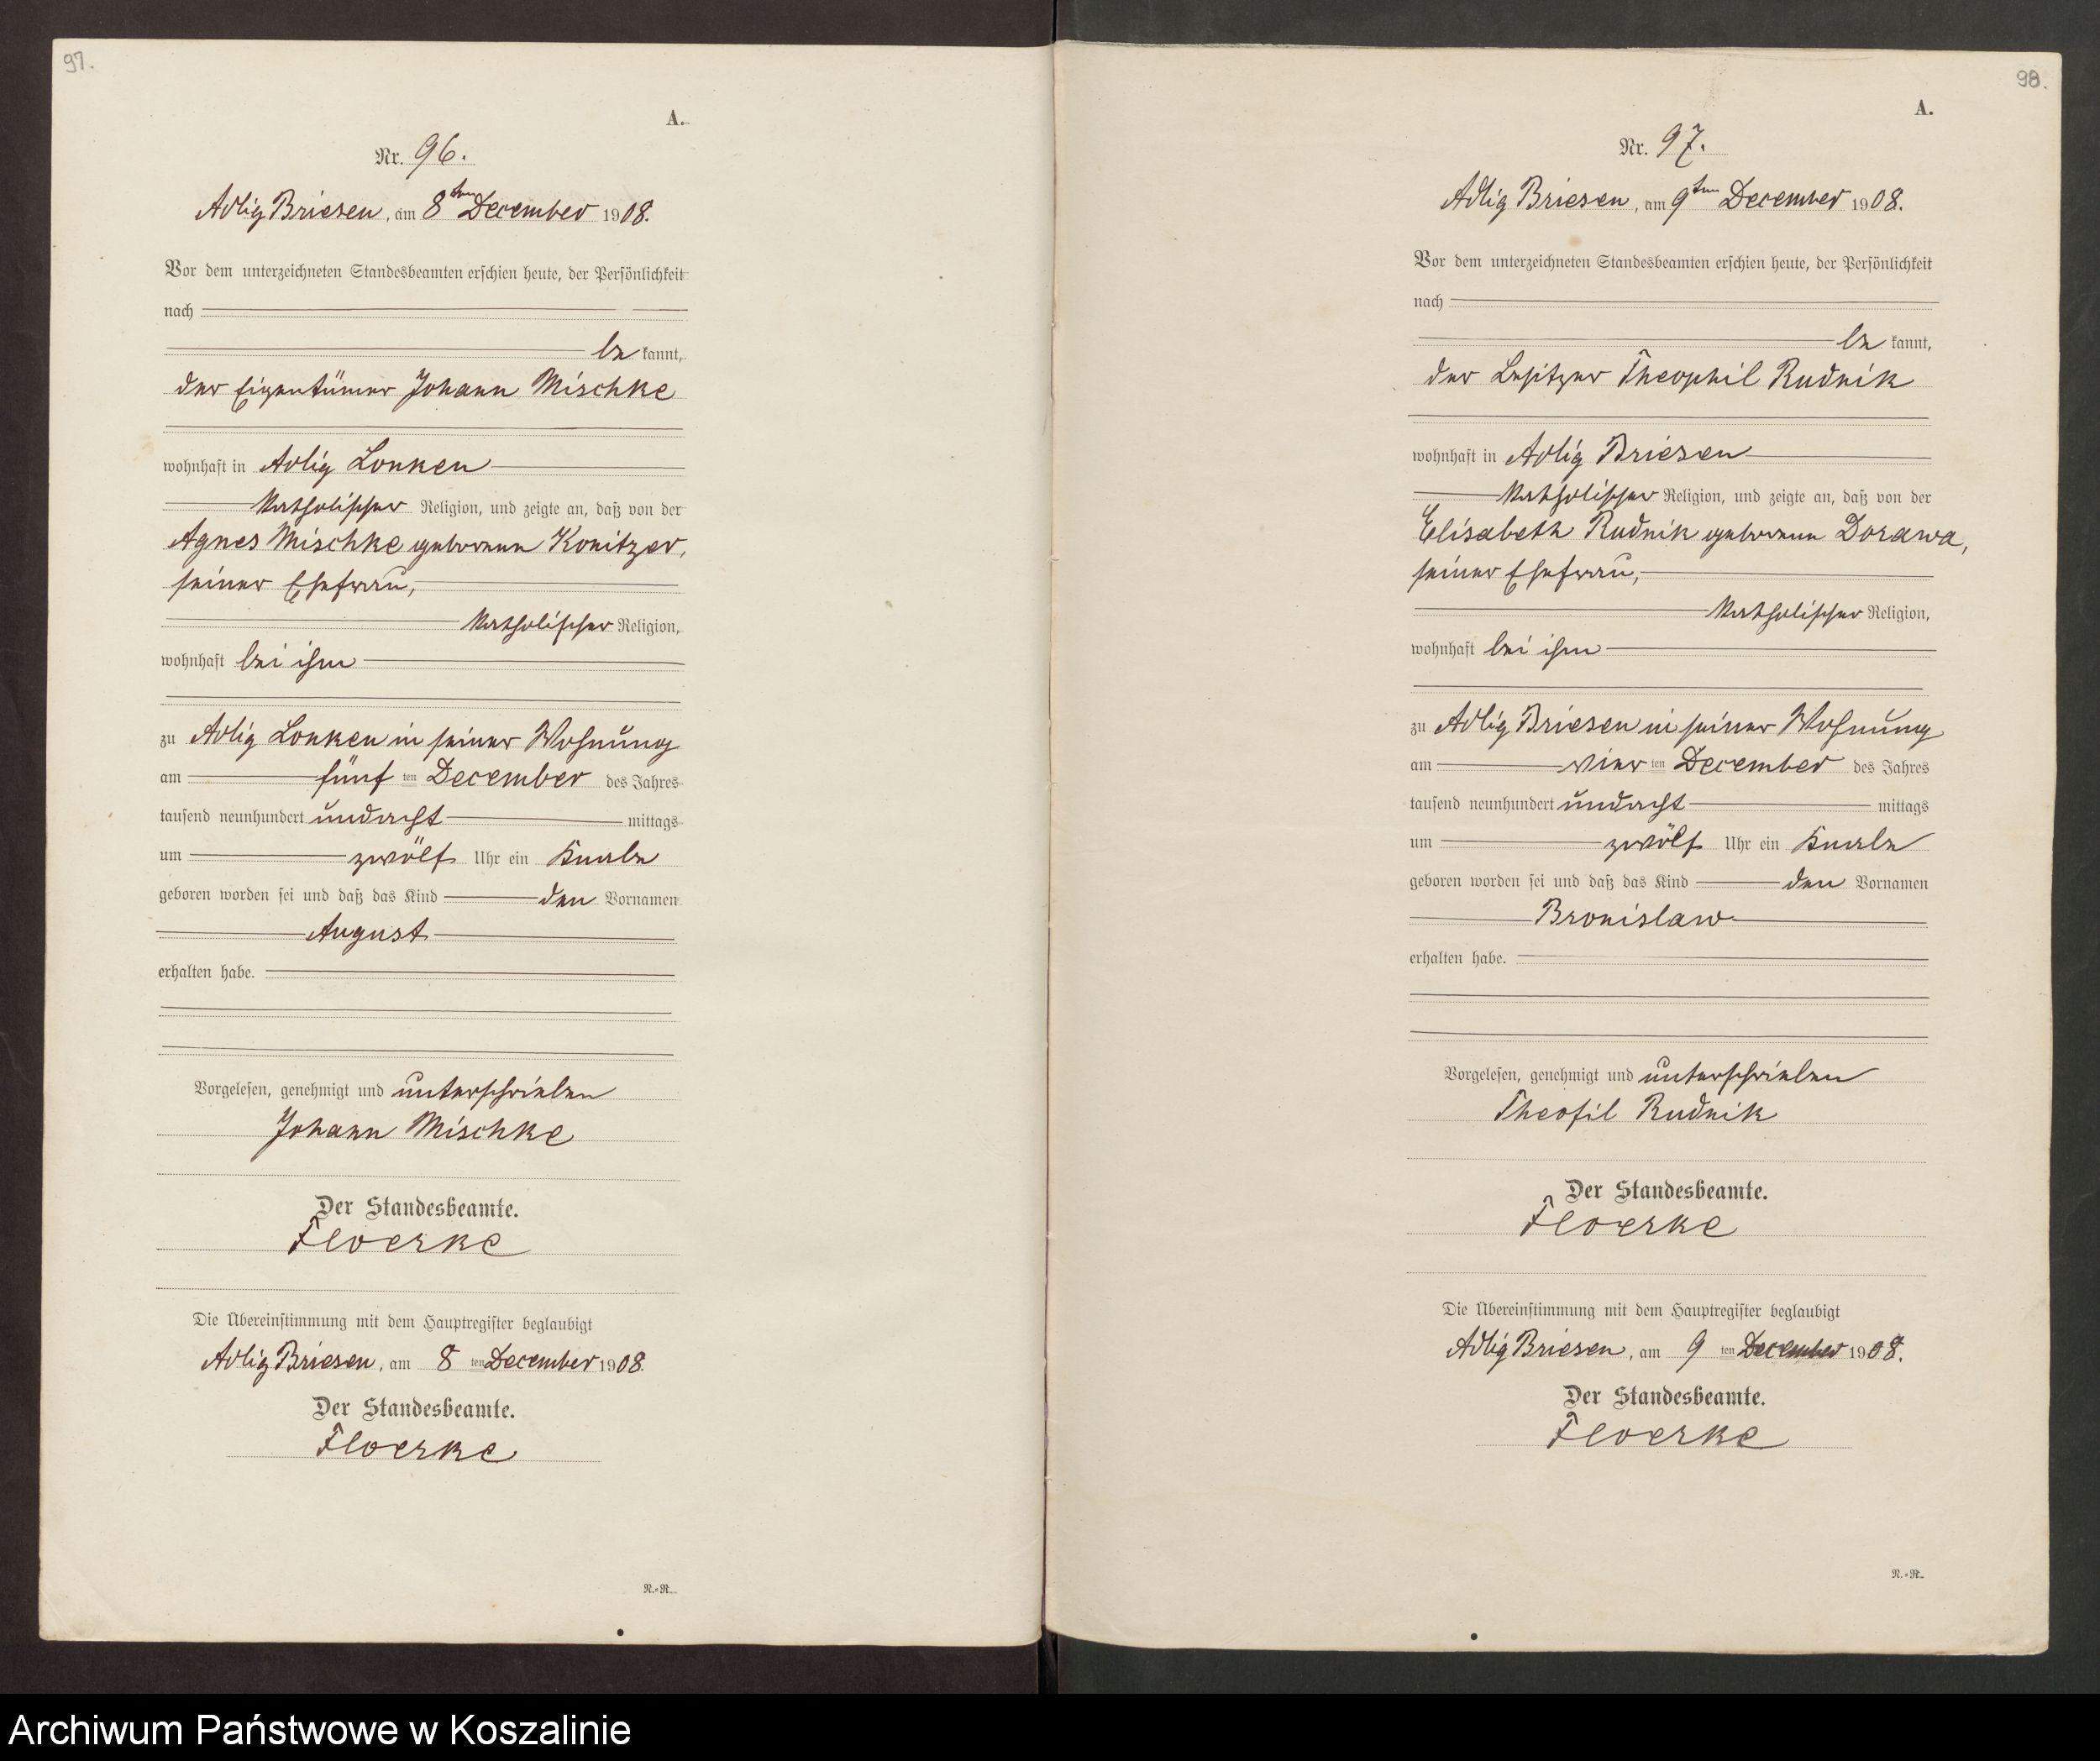 97.
A.
Nr. 96.
Adlig Briesen, am 8ten December 1908.
Vor dem unterzeichneten Standesbeamten erschien heute, der Persönlichkeit
nach
be kannt,
der Eigentümer Johann Mischke
wohnhaft in Adlig Lonken
katholischer Religion, und zeigte an, daß von der
Agnes Mischke geborenen Konitzer,
seiner Ehefrau,
katholischer Religion,
wohnhaft bei ihm
zu Adlig Lonken in seiner Wohnung
am fünf ten December des Jahres
tausend neunhundert undacht mittags
um zwölf Uhr ein Knabe
geboren worden sei und daß das Kind den Vornamen
August
erhalten habe.
Vorgelesen, genehmigt und unterschrieben
Johann Mischke
Der Standesbeamte.
Floerke
Die Übereinstimmung mit dem Hauptregister beglaubigt
Adlig Briesen, am 8 ten December 1908.
Der Standesbeamte.
Floerke
N.=R.
98.
A.
Nr. 97.
Adlig Briesen, am 9ten December 1908.
Vor dem unterzeichneten Standesbeamten erschien heute, der Persönlichkeit
nach
be kannt,
der Besitzer Theophil Rudnik
wohnhaft in Adlig Briesen
katholischer Religion, und zeigte an, daß von der
Elisabeth Rudnik geborenen Dorawa,
seiner Ehefrau,
katholischer Religion,
wohnhaft bei ihm
zu Adlig Briesen in seiner Wohnung
am vier ten December des Jahres
tausend neunhundert undacht mittags
um zwölf Uhr ein Knabe
geboren worden sei und daß das Kind den Vornamen
Bronislaw
erhalten habe.
Vorgelesen, genehmigt und unterschrieben
Theofil Rudnik
Der Standesbeamte.
Floerke
Die Übereinstimmung mit dem Hauptregister beglaubigt
Adlig Briesen, am 9 ten December 1908.
Der Standesbeamte.
Floerke
N.=R.
Archiwum Państwowe w Koszalinie